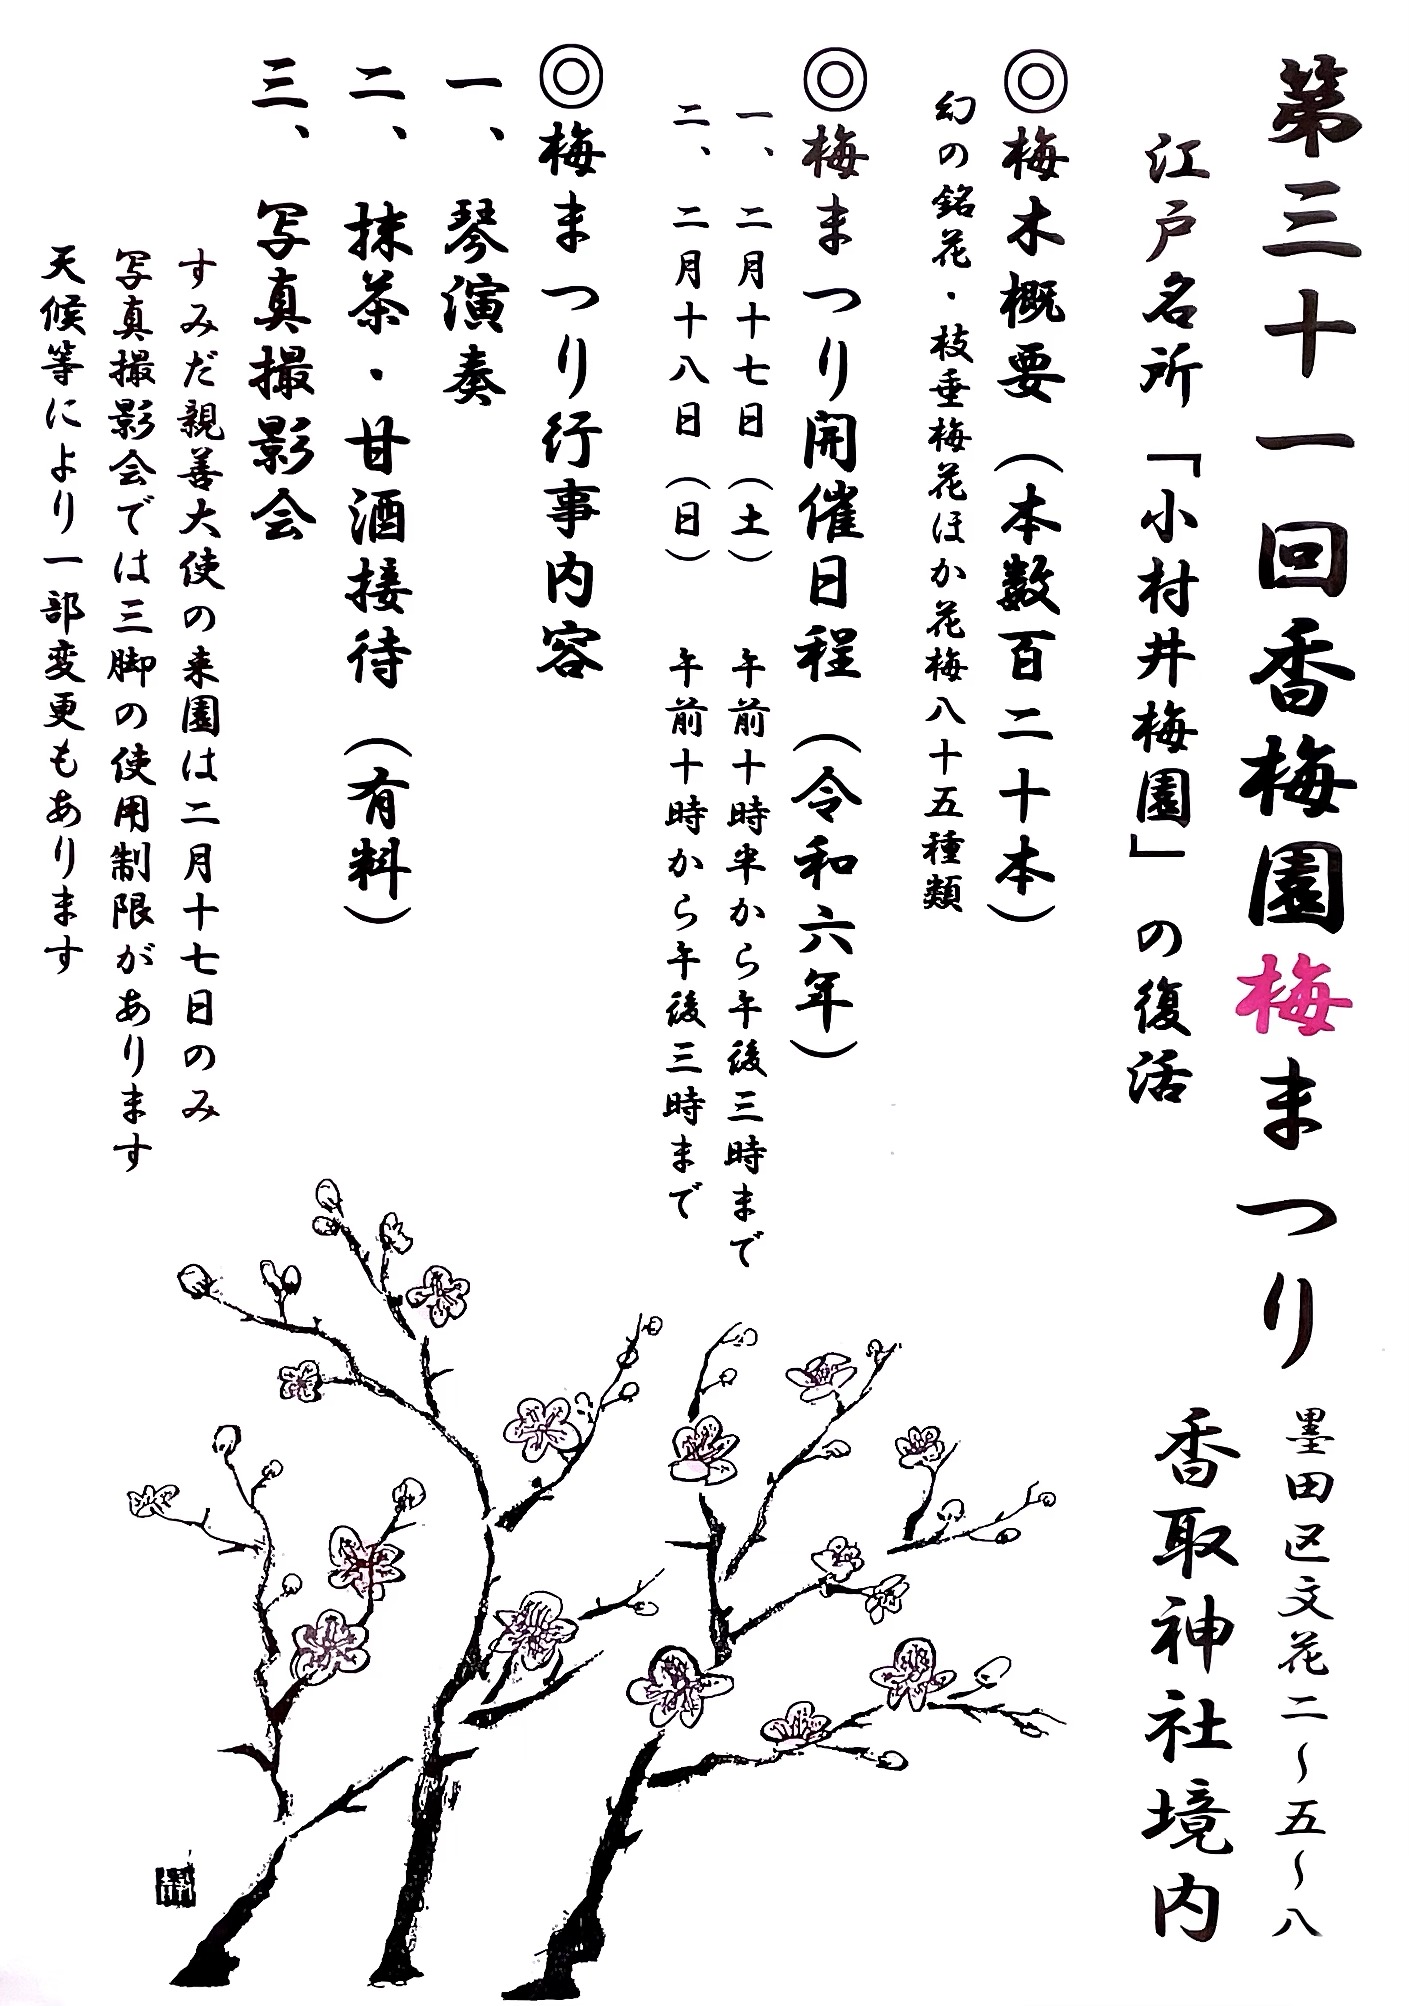 第三十一回香梅園梅まつり
墨田区文花二〜五〜八
香取神社境内
江戸名所「小村井梅園」の復活
◎梅木概要（本数百二十本）
幻の銘花・枝垂梅花ほか花梅八十五種類
◎梅まつり開催日程（令和六年）
一、二月十七日（土）　午前十時半から午後三時まで
二、二月十八日（日）　午前十時から午後三時まで
◎梅まつり行事内容
一、琴演奏
二、抹茶・甘酒接待（有料）
三、写真撮影会
すみだ親善大使の来園は二月十七日のみ
写真撮影会では三脚の使用制限があります
天候等により一部変更もあります